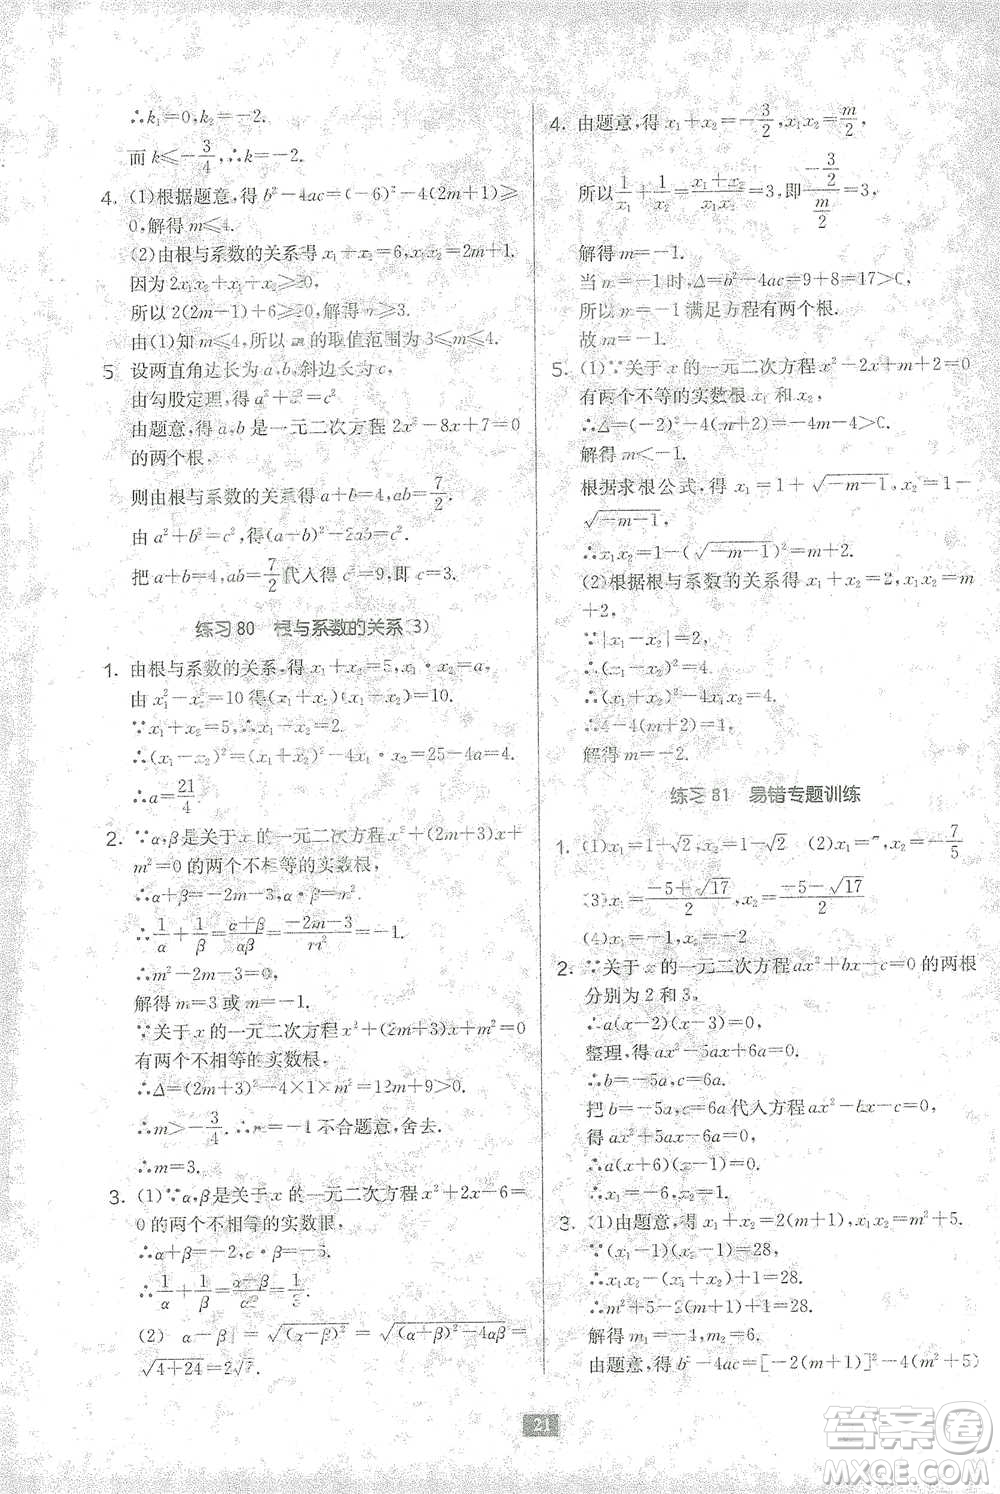 ∴k₁=0,k₂=-2.
而 k≤-3/4,∴k=-2.
4. (1)根据题意,得 b²-4ac=(-6)²-4(2m+1)≥
0,解得 m≤4.
(2)由根与系数的关系得 x₁+x₂=6,x₁x₂=2m+1.
因为 2x₁x₂+x₁+x₂≥20,
所以 2(2m-1)+6≥20,解得 m≥3.
由(1)知 m≤4,所以 m 的取值范围为 3≤m≤4.
5 设两直角边长为 a,b,斜边长为 c,
由勾股定理,得 a²+b²=c²
由题意,得 a,b 是一元二次方程 2x²-8x+7=0
的两个根,
则由根与系数的关系得 a+b=4,ab=7/2.
由 a²+b²=c²,得(a+b)²-2ab=c²,
把 a+b=4,ab=7/2代入得 c²=9,即 c=3.
练习 80 根与系数的关系(3)
1. 由根与系数的关系,得 x₁+x₂=5,x₁·x₂=a,
由 x₁²-x₂²=10 得(x₁+x₂)(x₁-x₂)=10.
∵x₁+x₂=5,∴x₁-x₂=2,
∴(x₁-x₂)²=(x₁+x₂)²-4x₁·x₂=25-4a=4,
∴a=21/4
2. ∵α,β是关于 x 的一元二次方程 x²+(2m+3)x+
m²=0 的两个不相等的实数根,
∴α+β=-2m-3,αβ=m².
∴1/α+1/β=(α+β)/αβ=(-2m-3)/m²=-1.
∴m²-2m-3=0,
解得 m=3 或 m=-1.
∵关于 x 的一元二次方程 x²+(2m+3)x+m²=0
有两个不相等的实数根,
∴Δ=(2m+3)²-4×1×m²=12m+9>0.
∴m>-3/4,∴m=-1 不合题意,舍去.
∴m=3.
3. (1)∵α,β是关于 x 的一元二次方程 x²+2x-6=
0 的两个不相等的实数根,
∴α+β=-2,α·β=-6.
∴1/α+1/β=(α+β)/αβ=1/3.
(2) |α-β|=√(α-β)²=√(α+β)²-4αβ=
√4+24=2√7.
4. 由题意,得 x₁+x₂=-3/2,x₁x₂=m/2,
所以 1/x₁+1/x₂=(x₁+x₂)/x₁x₂=3,即(-3/2)/(m/2)=3,
解得 m=-1.
当 m=-1 时,Δ=b²-4ac=9+8=17>0,
所以 m=-1 满足方程有两个根.
故 m=-1.
5. (1)∵关于 x 的一元二次方程 x²-2x+m+2=0
有两个不等的实数根 x₁ 和 x₂,
∴Δ=(-2)²-4(m+2)=-4m-4>0.
解得 m<-1.
根据求根公式,得 x₁=1+√-m-1,x₂=1-
√-m-1,
∴x₁x₂=1-(√-m-1)²=m+2.
(2)根据根与系数的关系得 x₁+x₂=2,x₁x₂=m
+2.
∵|x₁-x₂|=2,
∴(x₁-x₂)²=4.
∴(x₁+x₂)²-4x₁x₂=4.
∴4-4(m+2)=4.
解得 m=-2.
练习 81 易错专题训练
1. (1)x₁=1+√2,x₂=1-√2 (2)x₁= ,x₂=-7/5
(3)x₁=(-5+√17)/ ,x₂=(-5-√17)/
(4)x₁=-1,x₂=-2
2. ∵关于 x 的一元二次方程 ax²+bx-c=0 的两根
分别为 2 和 3,
∴a(x-2)(x-3)=0.
整理,得 ax²-5ax+6a=0.
∴b=-5a,c=6a.
把 b=-5a,c=6a代入方程
得 ax²+5ax-6a=0,
∴a(x+6)(x-1)=0.
∴x₁=-6,x₂=1.
3. (1)由题意,得 x₁+x₂=2(m+1),x₁x₂=m²+5.
∵(x₁-1)(x₂-1)=28,
∴x₁x₂-(x₁+x₂)+1=28.
∴m²+5-2(m+1)+1=28.
解得 m₁=-4,m₂=6.
由题意,得 b²-4ac=[-2(m+1)]²-4(m²+5)
21
答案圈
MXQE.COM